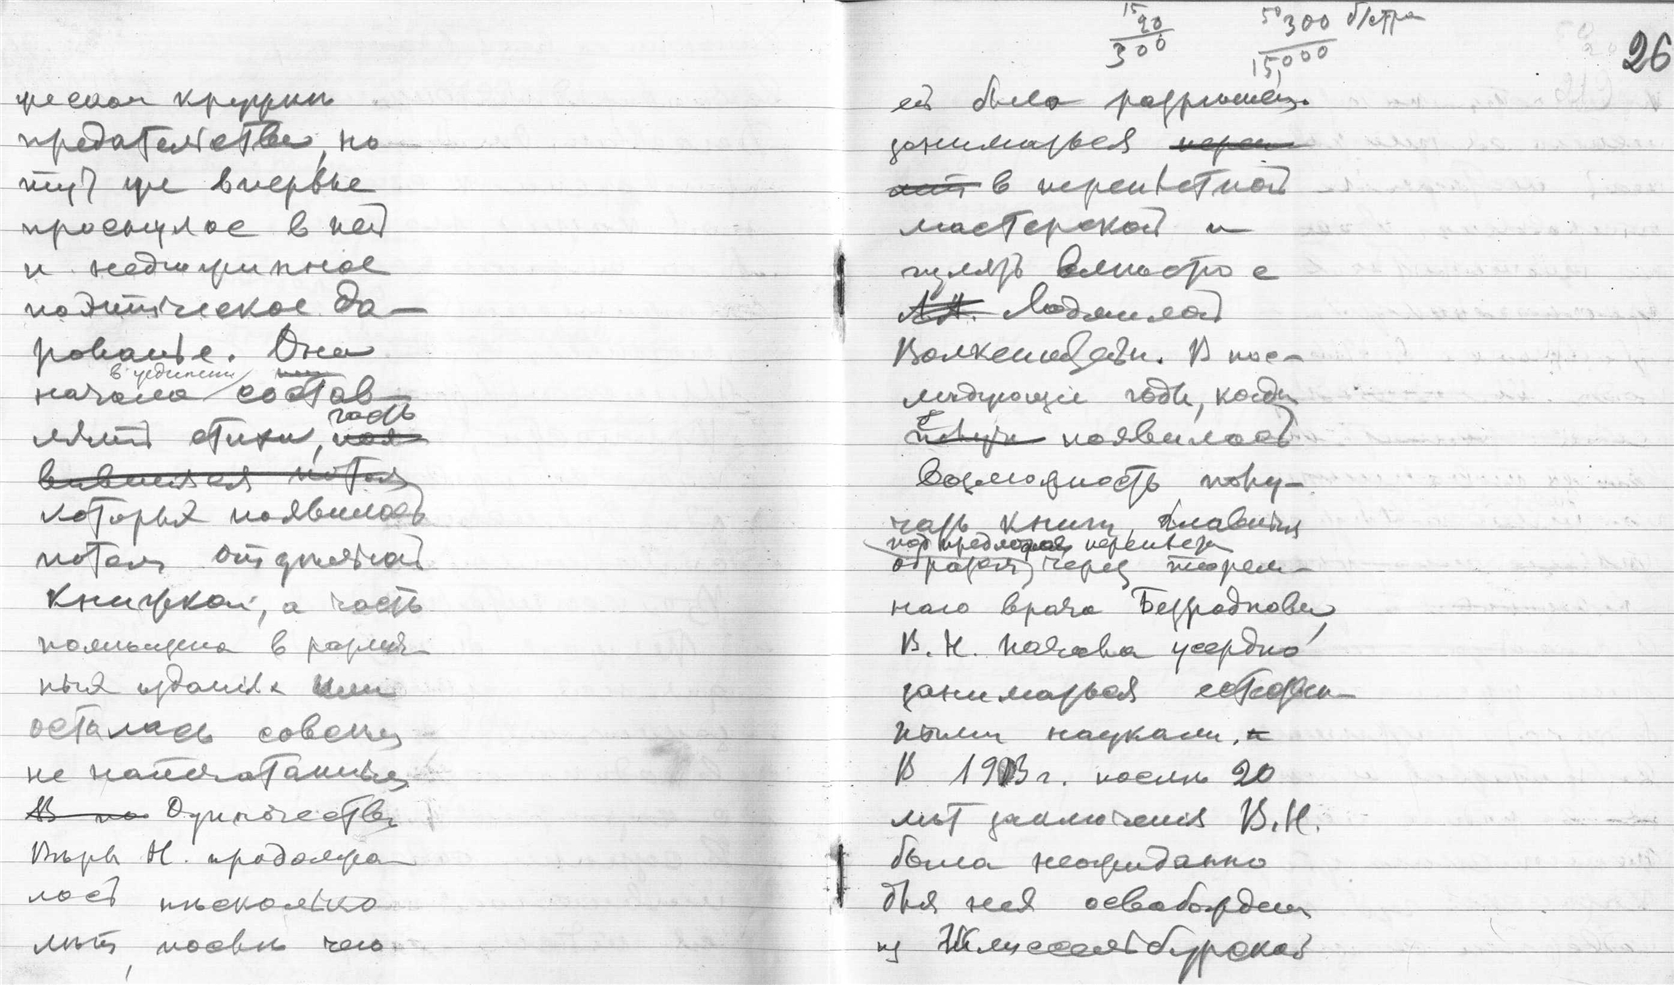 ческой кружки
предательства, но
тутъ же впервые
проснулось в ней
и недюжинное
поэтическое да-
рованье. Она
в уединении
начала состав-
лять стихи, часть
вившихся потом
которыя появилась
потом отдельной
книжкой, а часть
помещена в различ-
ныя изданія или
осталась совсем
не напечатанным
Одиночество
Вѣры Н. продолжа-
лось нѣсколько
лѣтъ, послѣ чего
15
20
300
50 300
15,000
26
ей было разрешено
заниматься переп
в переплетной
мастерской и
гулять вместо с
А.А. Людмилой
Волкенштейн. В пос-
ледующіе годы, когда
появилась
возможность полу-
чать книги, главным
под предлогом переплета
образом, через тюрем-
наго врача Безроднова,
В. Н. начала усердно
заниматься естествен-
ными науками.
В 1903 г. послѣ 20
лѣт заключенія В.Н.
была неожиданно
для нея освобождена
из Шлиссельбургской